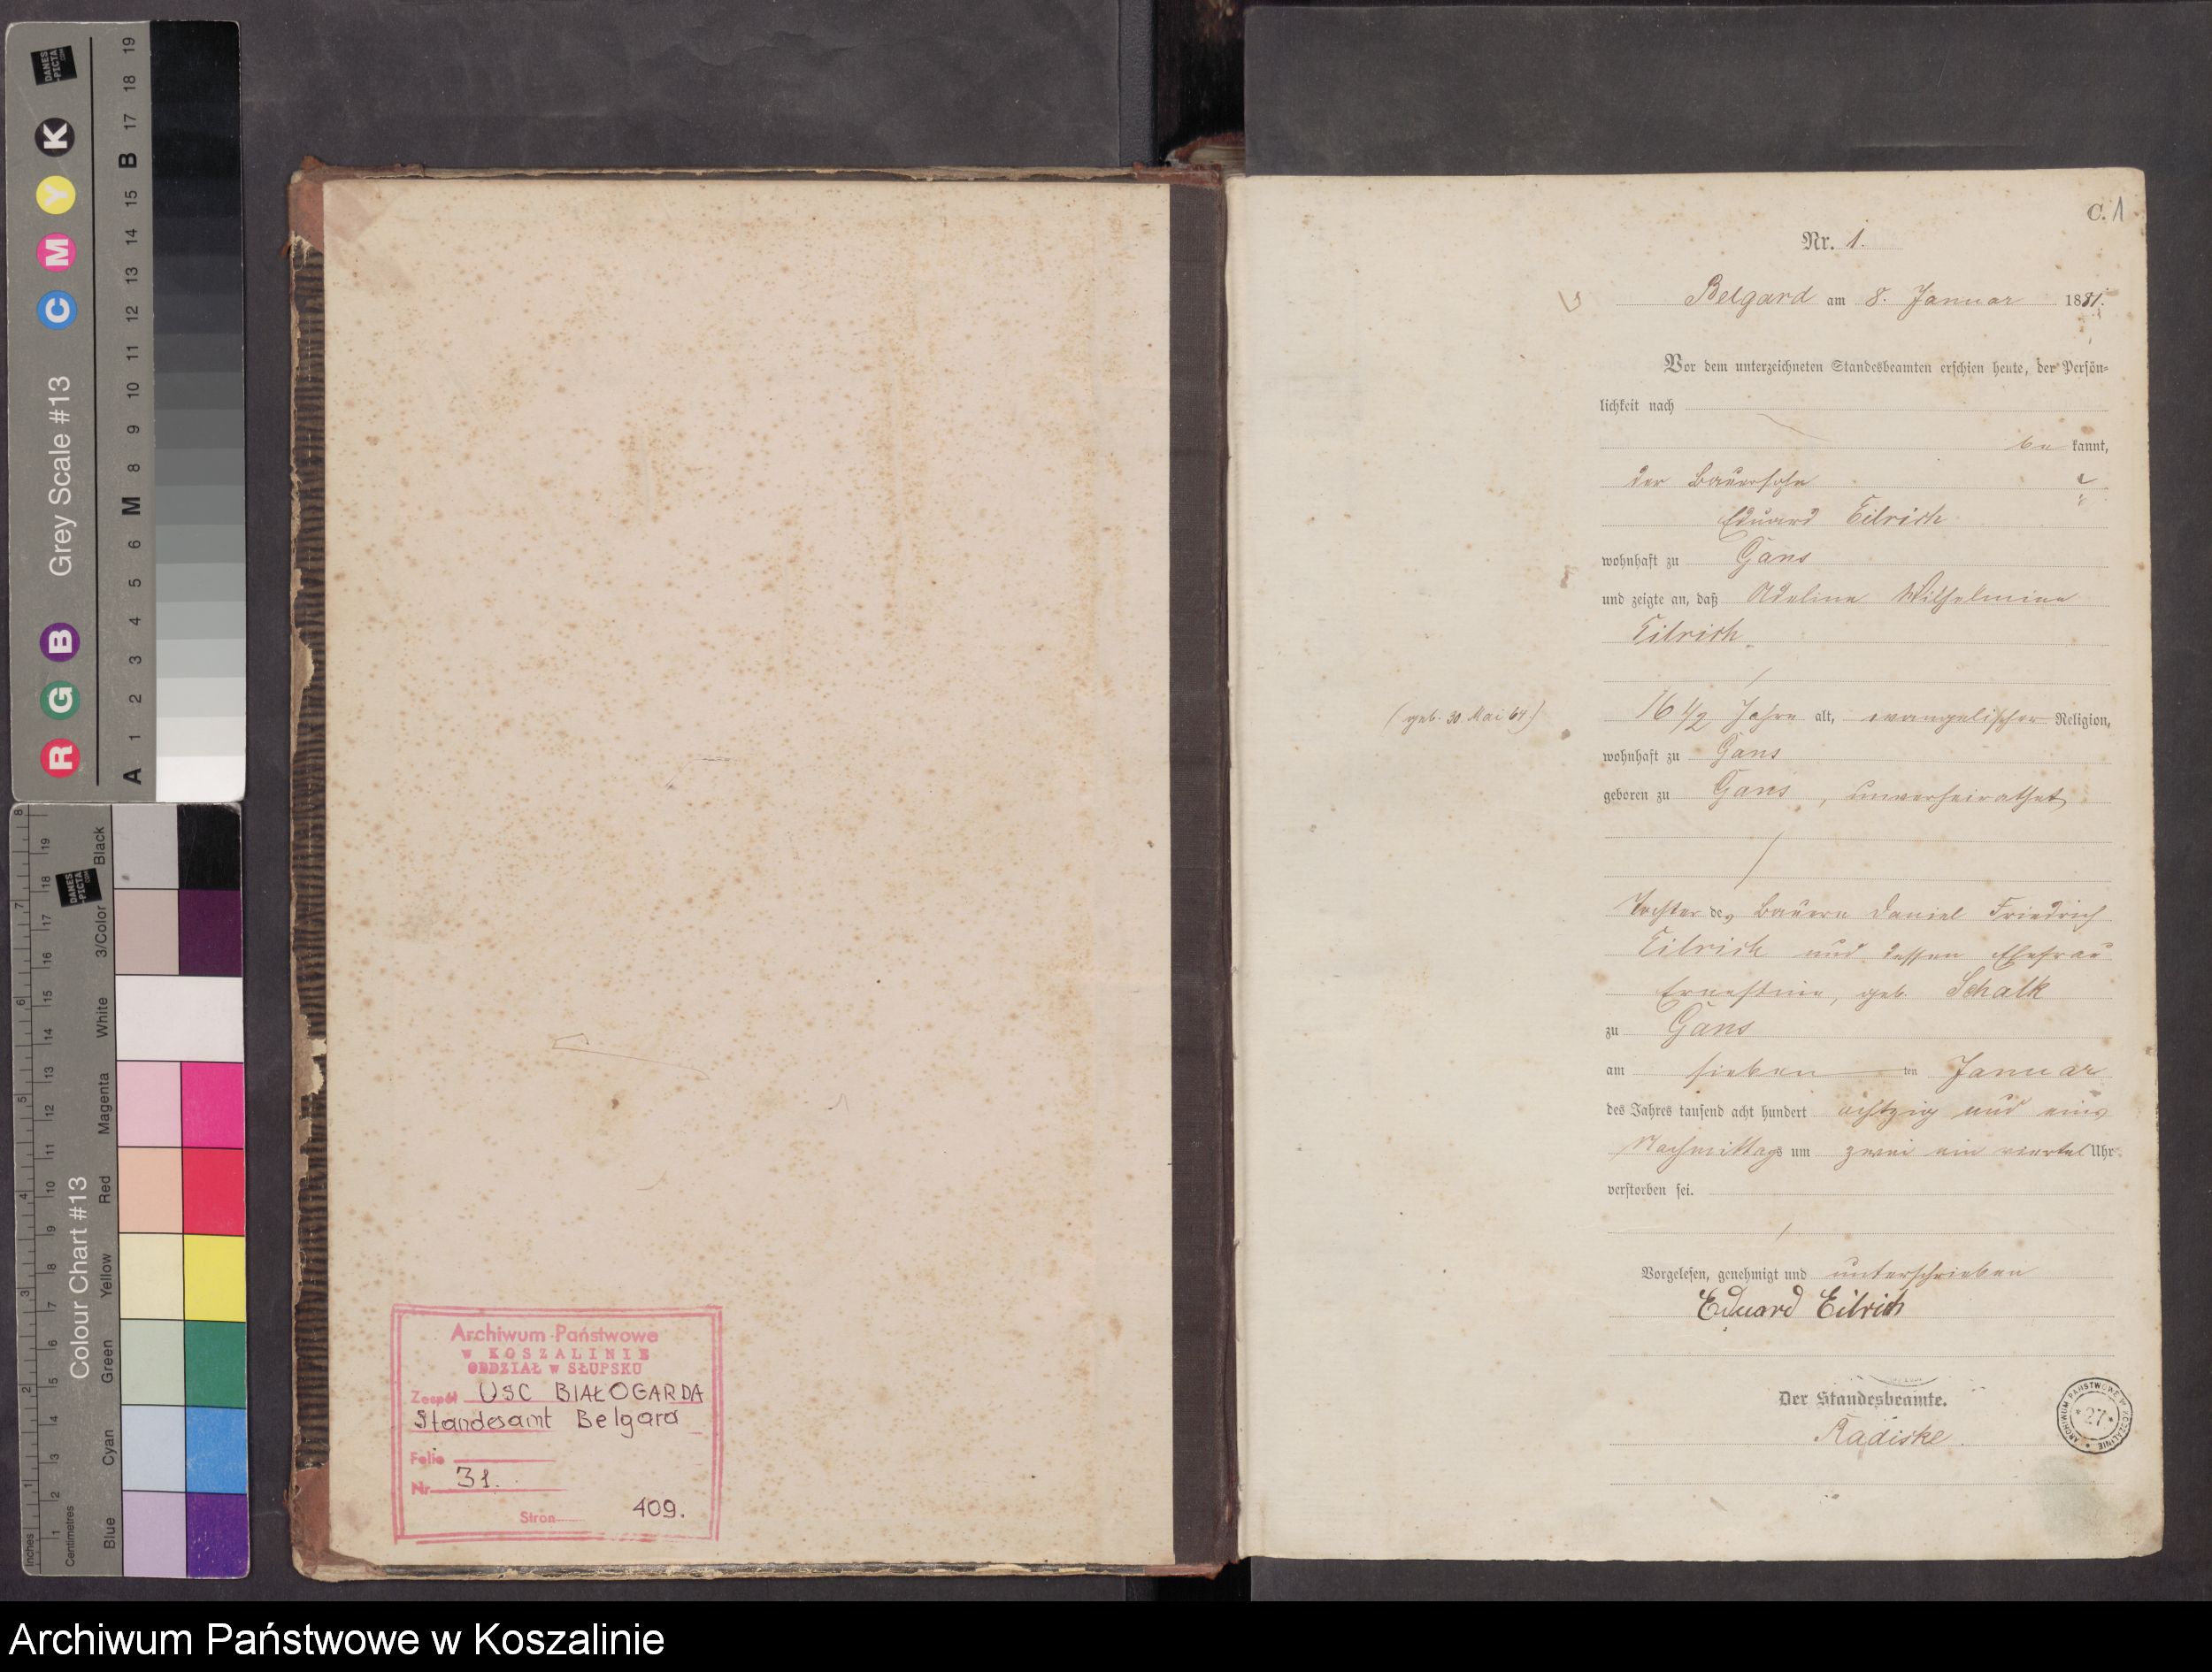 Grey Scale #13
R G B C M Y K
DANES
-PICTA
.COM
A 1 2 3 4 5 6 M 8 9 10 11 12 13 14 15 B 17 18 19
Colour Chart #13
DANES
-PICTA
.COM
Blue Cyan Green Yellow Red Magenta White 3/Color Black
Inches 1 2 3 4 5 6 7 8
Centimetres 1 2 3 4 5 6 7 8 9 10 11 12 13 14 15 16 17 18 19
Archiwum Państwowe
w KOSZALINIE
ODDZIAŁ w SŁUPSKU
Zespół USC BIAŁOGARDA
Standesamt Belgard
Folio
Nr 31.
Stron 409.
C. 1
Nr. 1.
Belgard am 8. Januar 1881.
Vor dem unterzeichneten Standesbeamten erschien heute, der Persön-
lichkeit nach
be kannt,
der Bauersohn
Eduard Eilrich
wohnhaft zu Gans
und zeigte an, daß Adeline Wilhelmine
Eilrich
(geb. 30 Mai 64)
16 1/2 Jahre alt, evangelischer Religion,
wohnhaft zu Gans
geboren zu Gans, unverheirathet
Tochter des Bauern Daniel Friedrich
Eilrich und dessen Ehefrau
Ernestine, geb. Schalk
zu Gans
am sieben ten Januar
des Jahres tausend acht hundert achtzig und eins
Nachmittags um zwei ein viertel Uhr
verstorben sei.
Vorgelesen, genehmigt und unterschrieben
Eduard Eilrich
Der Standesbeamte.
Radiske.
ARCHIWUM PAŃSTWOWE W KOSZALINIE
* 27 *
Archiwum Państwowe w Koszalinie